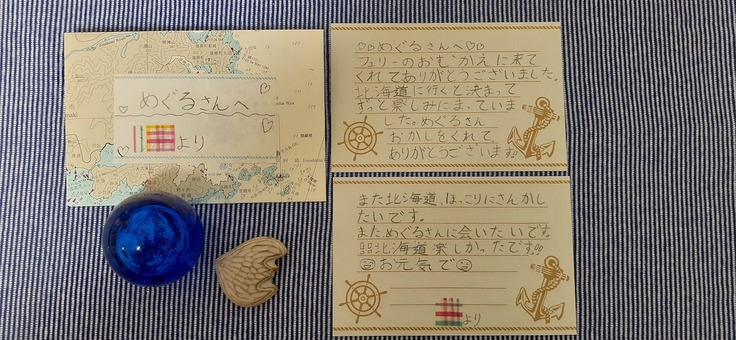 めぐるさんへ
より
♡♡めぐるさんへ♡♡
フェリーのおむかえに来て
くれてありがとうございました。
北海道に行くと決まって
ずっと楽しみにまっていま
した。めぐるさん
おかしをくれて、
ありがとうございます!!
また北海道、ほっこりにさんかし
たいです。
また、めぐるさんに会いたいです
北海道楽しかったです!!
お元気で
より